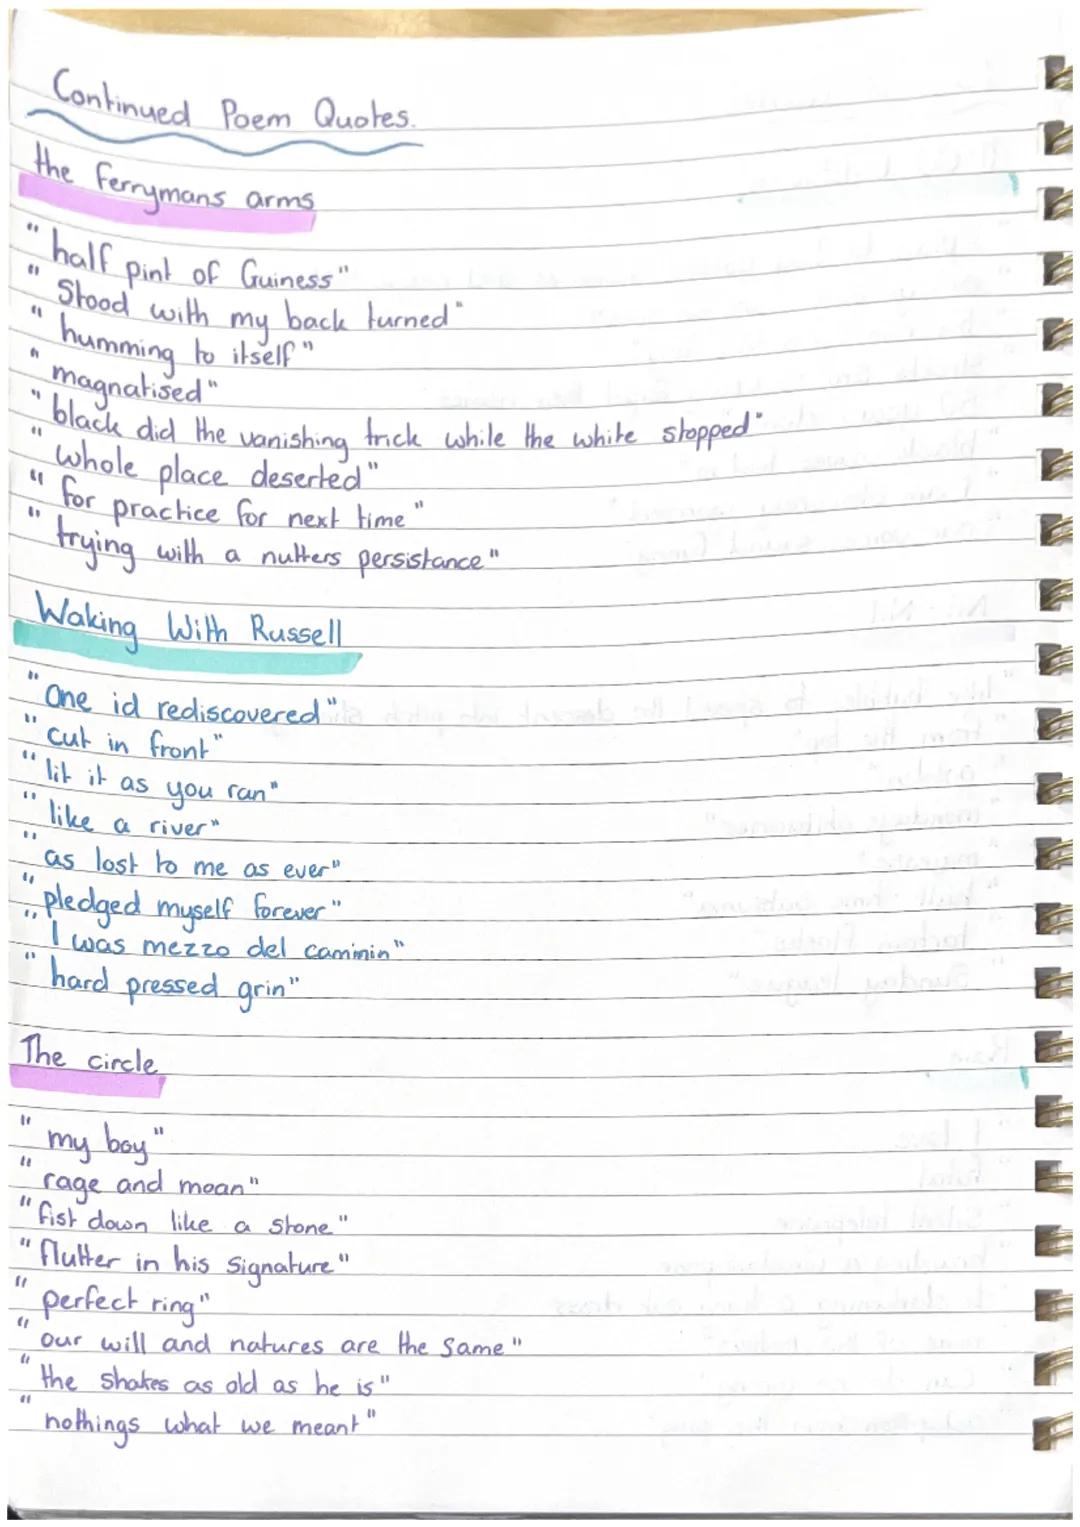 Continued Poem Quotes.
the ferrymans arms
"half pint of Guiness"
"Stood with my back turned"
"humming to itself"
"magnatised"
"black did the vanishing trick while the white stopped"
"whole place deserted"
"for practice for next time"
"trying with a nutters persistance"
Waking With Russell
"One id rediscovered"
"cut in front"
"lit it as you ran"
"like a river"
"as lost to me as ever"
"pledged myself forever"
"I was mezzo del cammin"
"hard pressed grin"
The circle
"my boy"
"rage and moan"
"fist down like a stone"
"flutter in his signature"
"perfect ring"
"our will and natures are the same"
"the shakes as old as he is"
"nothings what we meant"